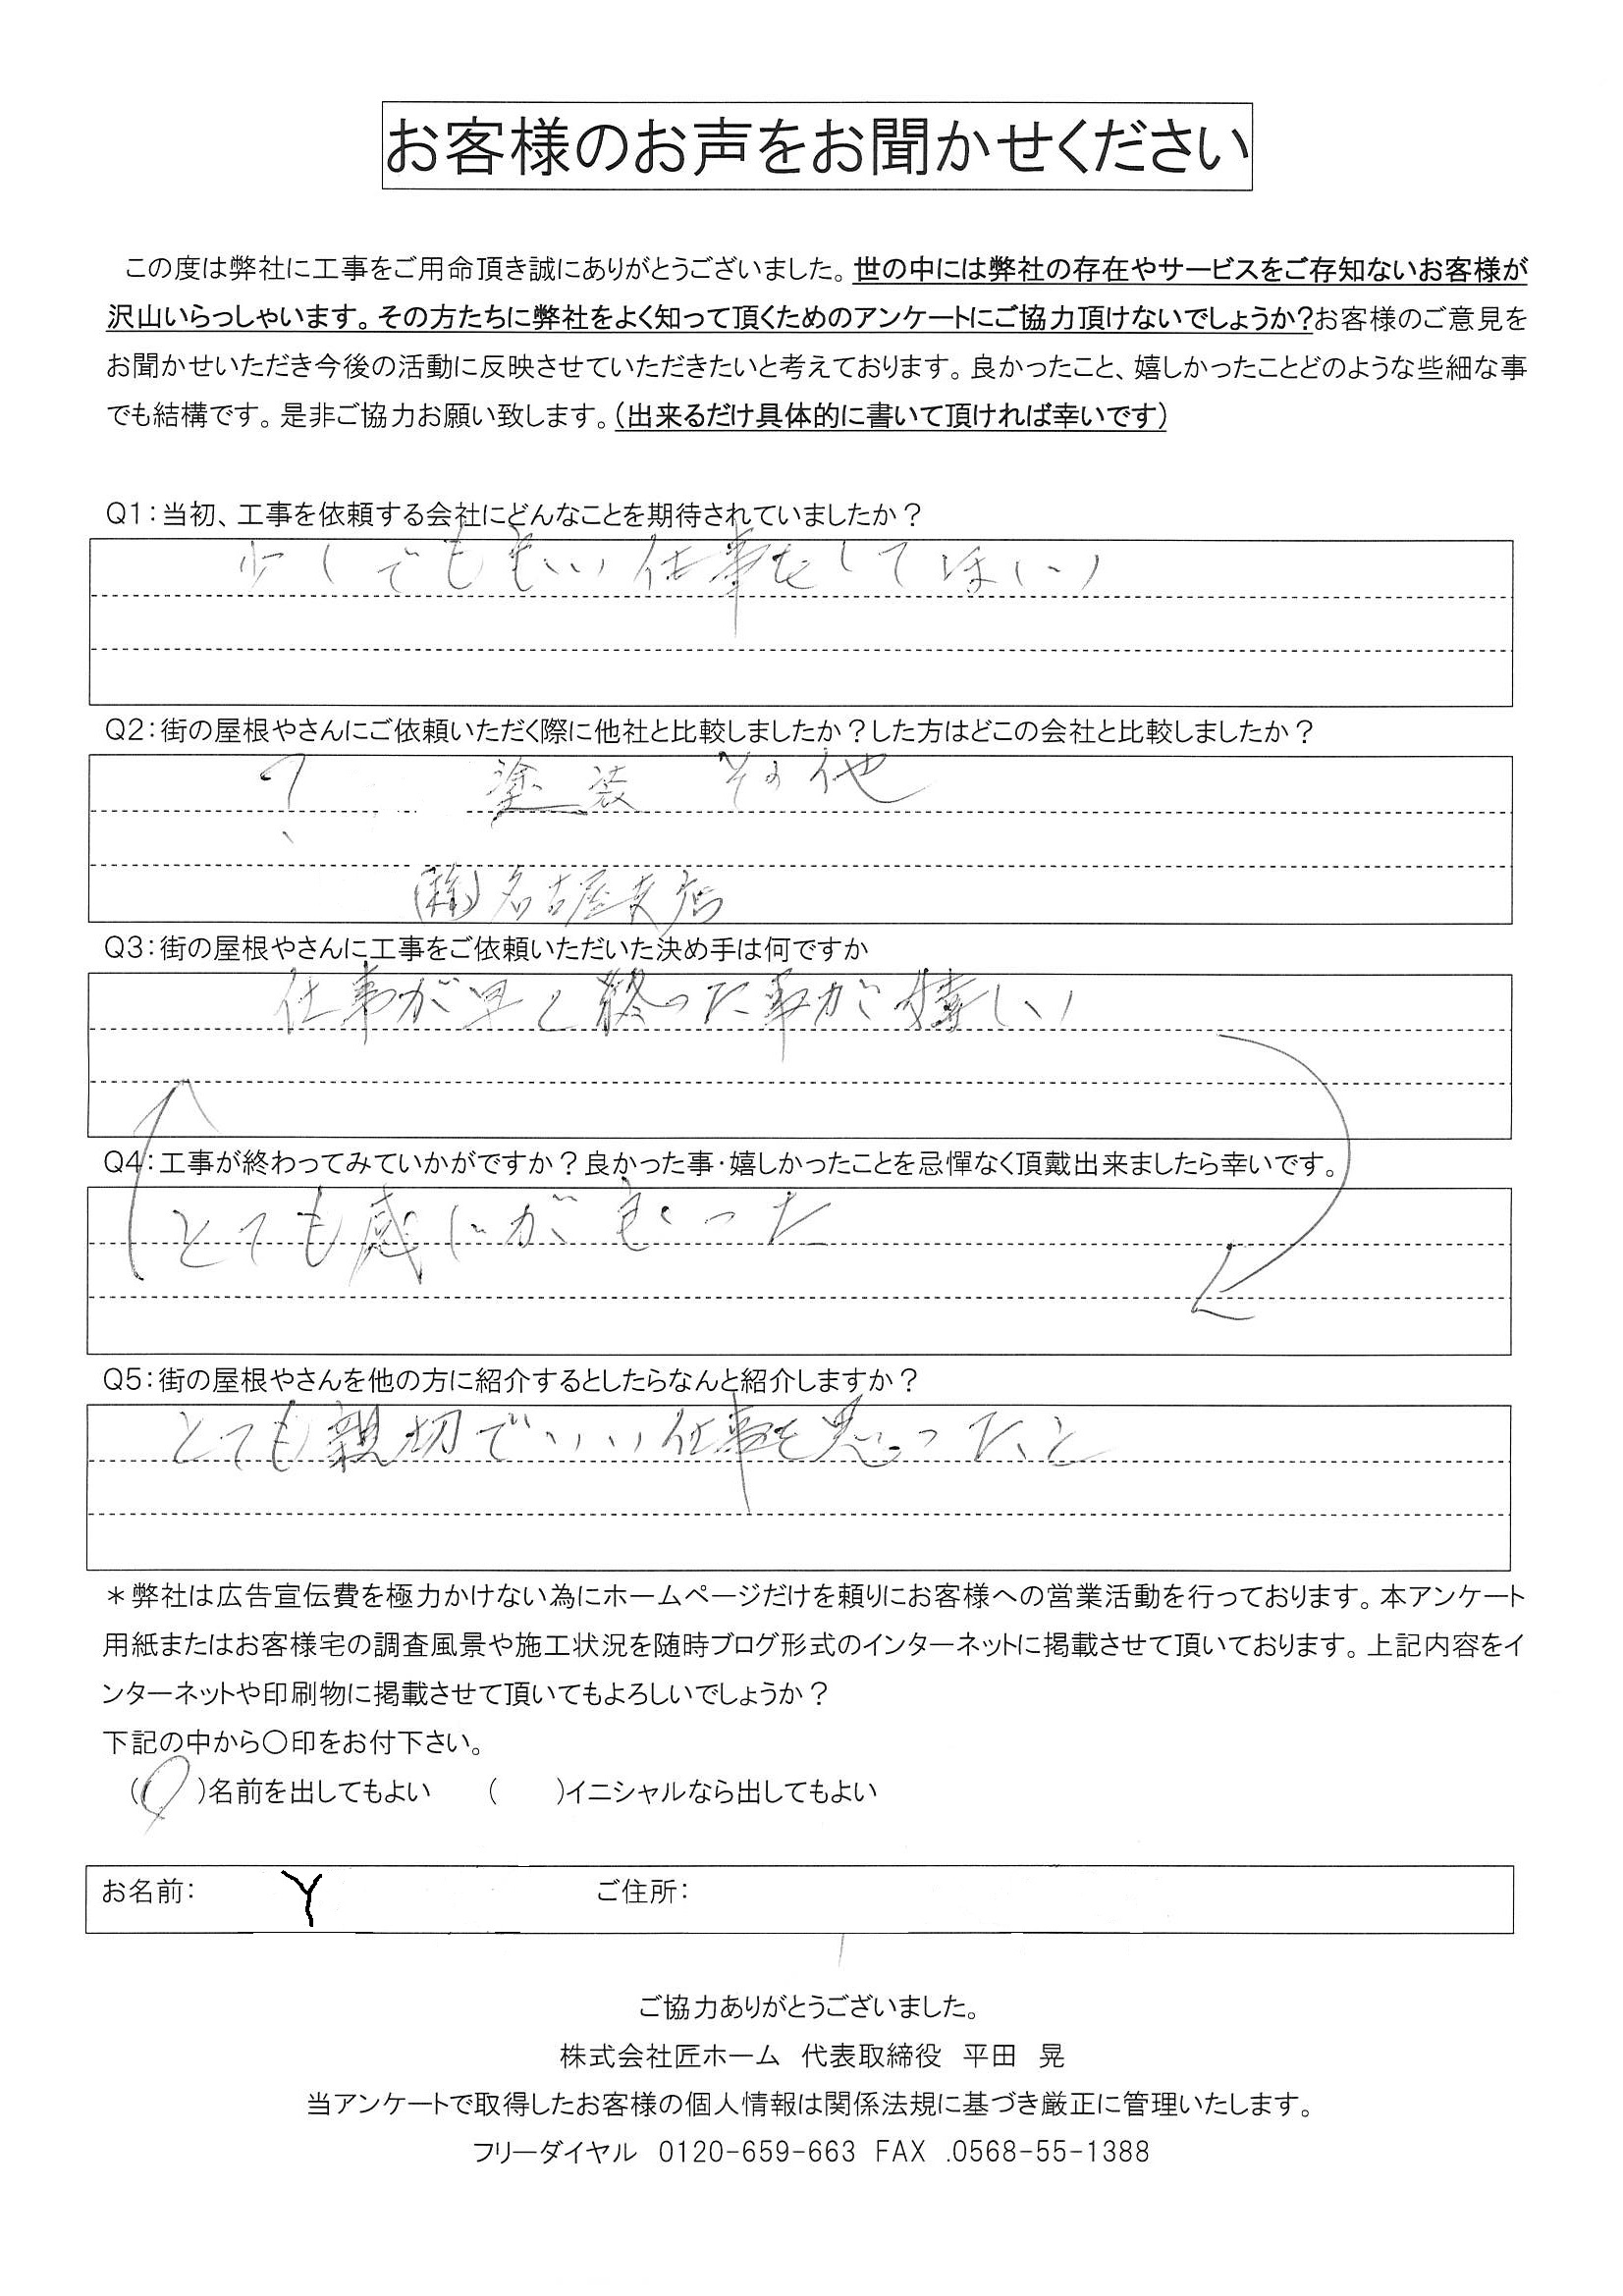 お客様のお声をお聞かせください
この度は弊社に工事をご用命頂き誠にありがとうございました。世の中には弊社の存在やサービスをご存知ないお客様が
沢山いらっしゃいます。その方たちに弊社をよく知って頂くためのアンケートにご協力頂けないでしょうか?お客様のご意見を
お聞かせいただき今後の活動に反映させていただきたいと考えております。良かったこと、嬉しかったことどのような些細な事
でも結構です。是非ご協力お願い致します。(出来るだけ具体的に書いて頂ければ幸いです)
Q1:当初、工事を依頼する会社にどんなことを期待されていましたか?
少しでも良い仕事をしてほしい
Q2:街の屋根やさんにご依頼いただく際に他社と比較しましたか?した方はどこの会社と比較しましたか?
? 塗装 その他
(株)名古屋支店
Q3:街の屋根やさんに工事をご依頼いただいた決め手は何ですか
仕事が早く終った事が嬉しい
Q4:工事が終わってみていかがですか?良かった事・嬉しかったことを忌憚なく頂戴出来ましたら幸いです。
とても感じが良かった
Q5:街の屋根やさんを他の方に紹介するとしたらなんと紹介しますか?
とても親切でいい仕事を思ったと
*弊社は広告宣伝費を極力かけない為にホームページだけを頼りにお客様への営業活動を行っております。本アンケート
用紙またはお客様宅の調査風景や施工状況を随時ブログ形式のインターネットに掲載させて頂いております。上記内容をイ
ンターネットや印刷物に掲載させて頂いてもよろしいでしょうか?
下記の中から〇印をお付下さい。
(〇)名前を出してもよい ( )イニシャルなら出してもよい
お名前: Y ご住所:
ご協力ありがとうございました。
株式会社匠ホーム 代表取締役 平田 晃
当アンケートで取得したお客様の個人情報は関係法規に基づき厳正に管理いたします。
フリーダイヤル 0120-659-663 FAX .0568-55-1388